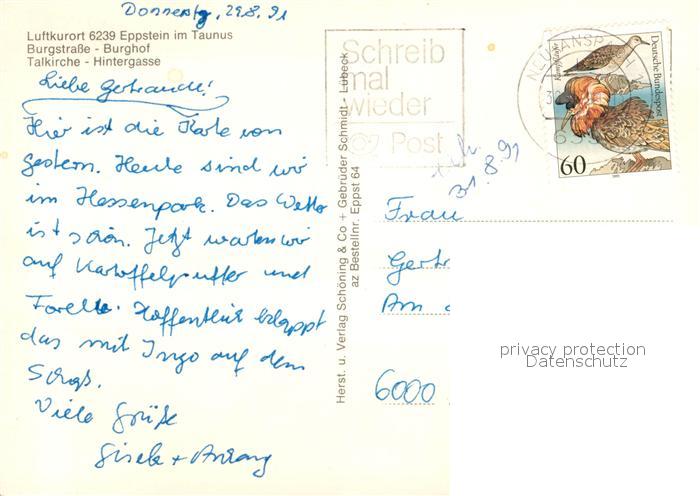 Donnerstg, 29.8.91
Luftkurort 6239 Eppstein im Taunus
Burgstraße - Burghof
Talkirche - Hintergasse
Liebe Gertraude!
Hier ist die Karte von
gestern. Heute sind wir
im Hessenpark. Das Wetter
ist schön. Jetzt warten wir
auf Kartoffelpuffer und
Forelle. Hoffentlich klappt
das mit Ingo auf dem
Viele Grüße
Gisela +
Herst. u. Verlag Schöning & Co + Gebrüder Schmidt - Lübeck
az Bestellnr. Eppst 64
Schreib
mal
wieder
Post
Deutsche Bundespost
Kampfläufer
60
31.8.91
Frau
Gertr
Am
6000
privacy protection
Datenschutz